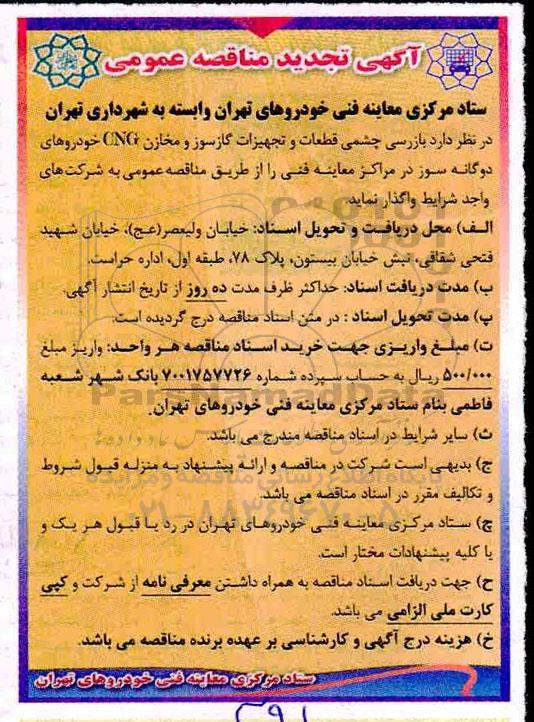 آگهی تجدید مناقصه عمومی
ستاد مرکزی معاینه فنی خودروهای تهران وابسته به شهرداری تهران
در نظر دارد بازرسی چشمی قطعات و تجهیزات گازسوز و مخازن CNG خودروهای
دوگانه سوز در مراکز معاینه فنی را از طریق مناقصه عمومی به شرکت‌های
واجد شرایط واگذار نماید.
الف) محل دریافت و تحویل اسناد: خیابان ولیعصر(عج)، خیابان شهید
فتحی شقاقی، نبش خیابان بیستون، پلاک ۷۸، طبقه اول، اداره حراست.
ب) مدت دریافت اسناد: حداکثر ظرف مدت ده روز از تاریخ انتشار آگهی.
پ) مدت تحویل اسناد : در متن اسناد مناقصه درج گردیده است.
ت) مبلغ واریزی جهت خرید اسناد مناقصه هر واحد: واریز مبلغ
۵۰۰/۰۰۰ ریال به حساب سپرده شماره ۷۰۰۱۷۵۷۷۲۶ بانک شهر شعبه
فاطمی بنام ستاد مرکزی معاینه فنی خودروهای تهران.
ث) سایر شرایط در اسناد مناقصه مندرج می باشد.
ج) بدیهی است شرکت در مناقصه و ارائه پیشنهاد به منزله قبول شروط
و تکالیف مقرر در اسناد مناقصه می باشد.
چ) ستاد مرکزی معاینه فنی خودروهای تهران در رد یا قبول هر یک و
یا کلیه پیشنهادات مختار است.
ح) جهت دریافت اسناد مناقصه به همراه داشتن معرفی نامه از شرکت و کپی
کارت ملی الزامی می باشد.
خ) هزینه درج آگهی و کارشناسی بر عهده برنده مناقصه می باشد.
ستاد مرکزی معاینه فنی خودروهای تهران
ParsNamadData
پایگاه اطلاع رسانی مناقصه و مزایده
۰۲۱-۸۸۳۴۹۶۷۰-۵